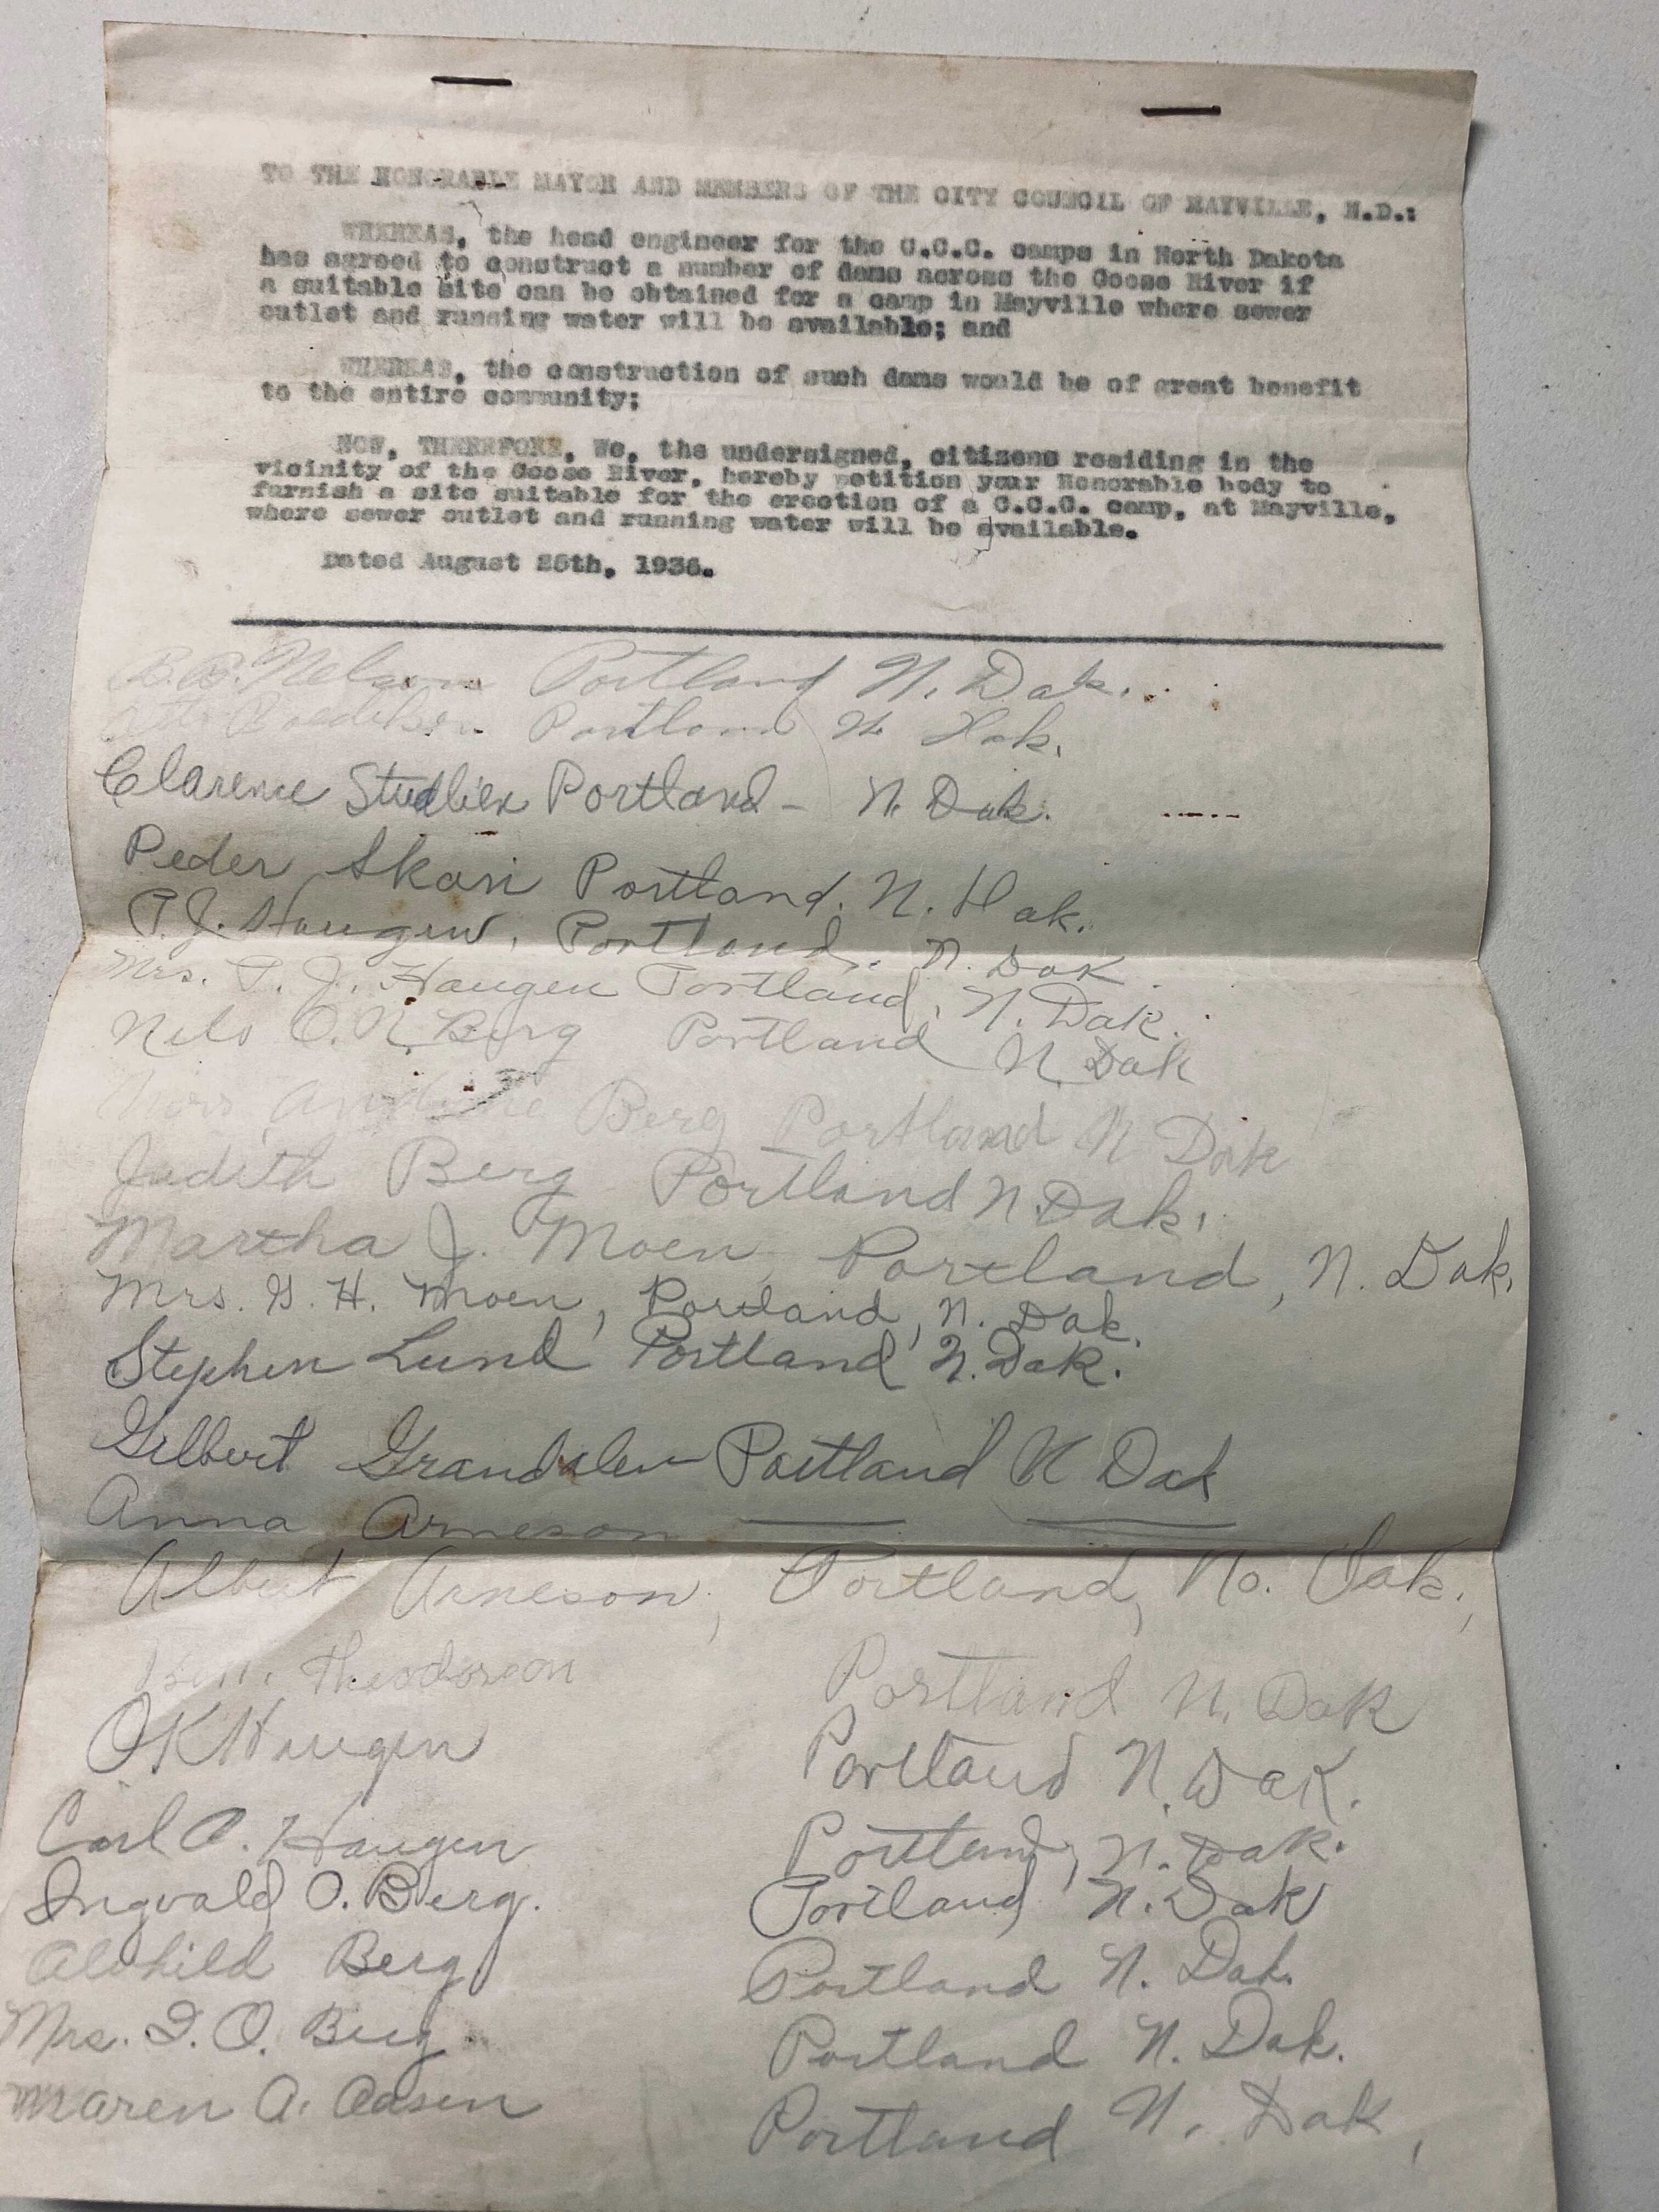 TO THE HONORABLE MAYOR AND MEMBERS OF THE CITY COUNCIL OF MAYVILLE, N.D.:
WHEREAS, the head engineer for the C.C.C. camps in North Dakota
has agreed to construct a number of dams across the Goose River if
a suitable site can be obtained for a camp in Mayville where sewer
outlet and running water will be available; and
WHEREAS, the construction of such dams would be of great benefit
to the entire community;
NOW, THEREFORE, We, the undersigned, citizens residing in the
vicinity of the Goose River, hereby petition your Honorable body to
furnish a site suitable for the erection of a C.C.C. camp, at Mayville,
where sewer outlet and running water will be available.
Dated August 25th, 1936.
B.B. Nelson Portland N. Dak.
Portland N. Dak.
Clarence Studlien Portland - N. Dak.
Peder Skari Portland. N. Dak.
T.J. Haugen, Portland, N. Dak
Mrs. T. J. Haugen Portland, N. Dak.
Nels O.N. Berg Portland N. Dak
Mrs Berg Portland N Dak
Judith Berg Portland N. Dak.
Martha J. Moen, Portland, N. Dak.
Mrs. G. H. Moen, Portland, N. Dak.
Stephen Lund Portland N. Dak.
Gilbert Grandalen Portland N Dak
Anna Arneson
Albert Arneson, Portland, No. Dak.,
Theodorson Portland N. Dak
OK Haugen Portland N. Dak.
Carl O. Haugen Portland, N. Dak.
Ingvald O. Berg. Portland N. Dak
Berg Portland N. Dak.
Mrs. I. O. Berg Portland N. Dak.
Maren A. Aasen Portland N. Dak,